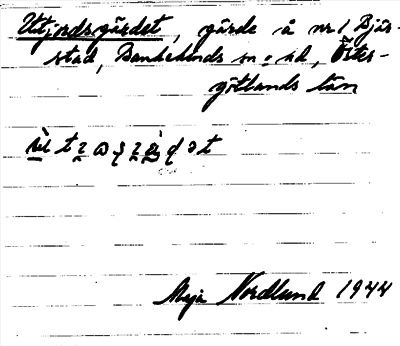 Utjordsgärdet, gärde å nr 1 Bjär-
stad, Bankekinds sn o hd, Öster-
götlands län
Maja Nordlund 1944